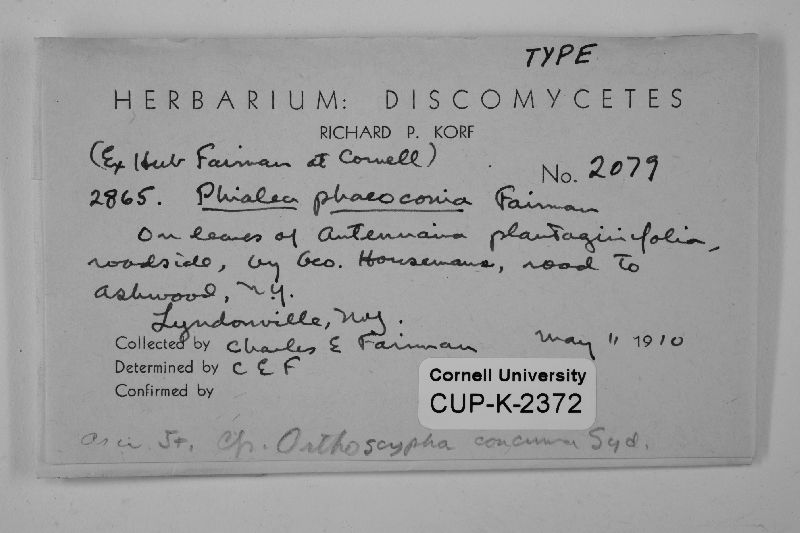 TYPE
HERBARIUM: DISCOMYCETES
RICHARD P. KORF
(Ex Herb Fairman at Cornell)
No. 2079
2865. Phialea phaeoconia Fairman
On leaves of Antennaria plantaginifolia,
roadside, by Geo. Housemans, road to
Ashwood, N.Y.
Lyndonville, N.Y.
Collected by Charles E Fairman May 11 1910
Determined by C E F
Confirmed by
Cornell University
CUP-K-2372
asci J+. Cf. Orthoscypha concinna Syd.